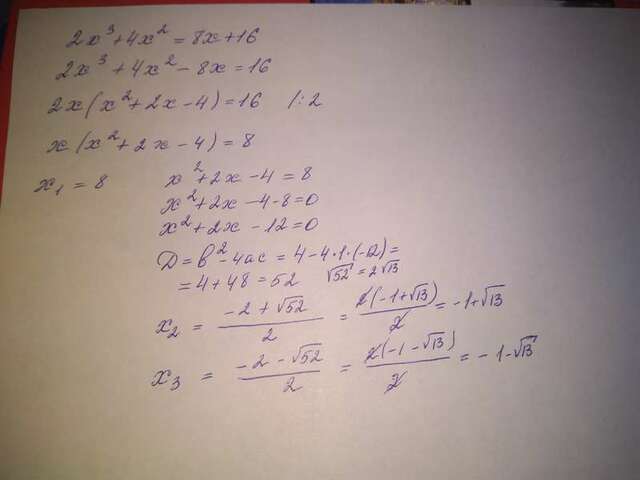 2x³+4x² = 8x+16
2x³+4x²-8x=16
2x(x²+2x-4)=16 /:2
x(x²+2x-4)=8
x₁=8 x²+2x-4=8
x²+2x-4-8=0
x²+2x-12=0
D=b²-4ac=4-4·1·(-12)=
=4+48=52 √52=2√13
x₂ = (-2+√52)/2 = 2(-1+√13)/2 = -1+√13
x₃ = (-2-√52)/2 = 2(-1-√13)/2 = -1-√13